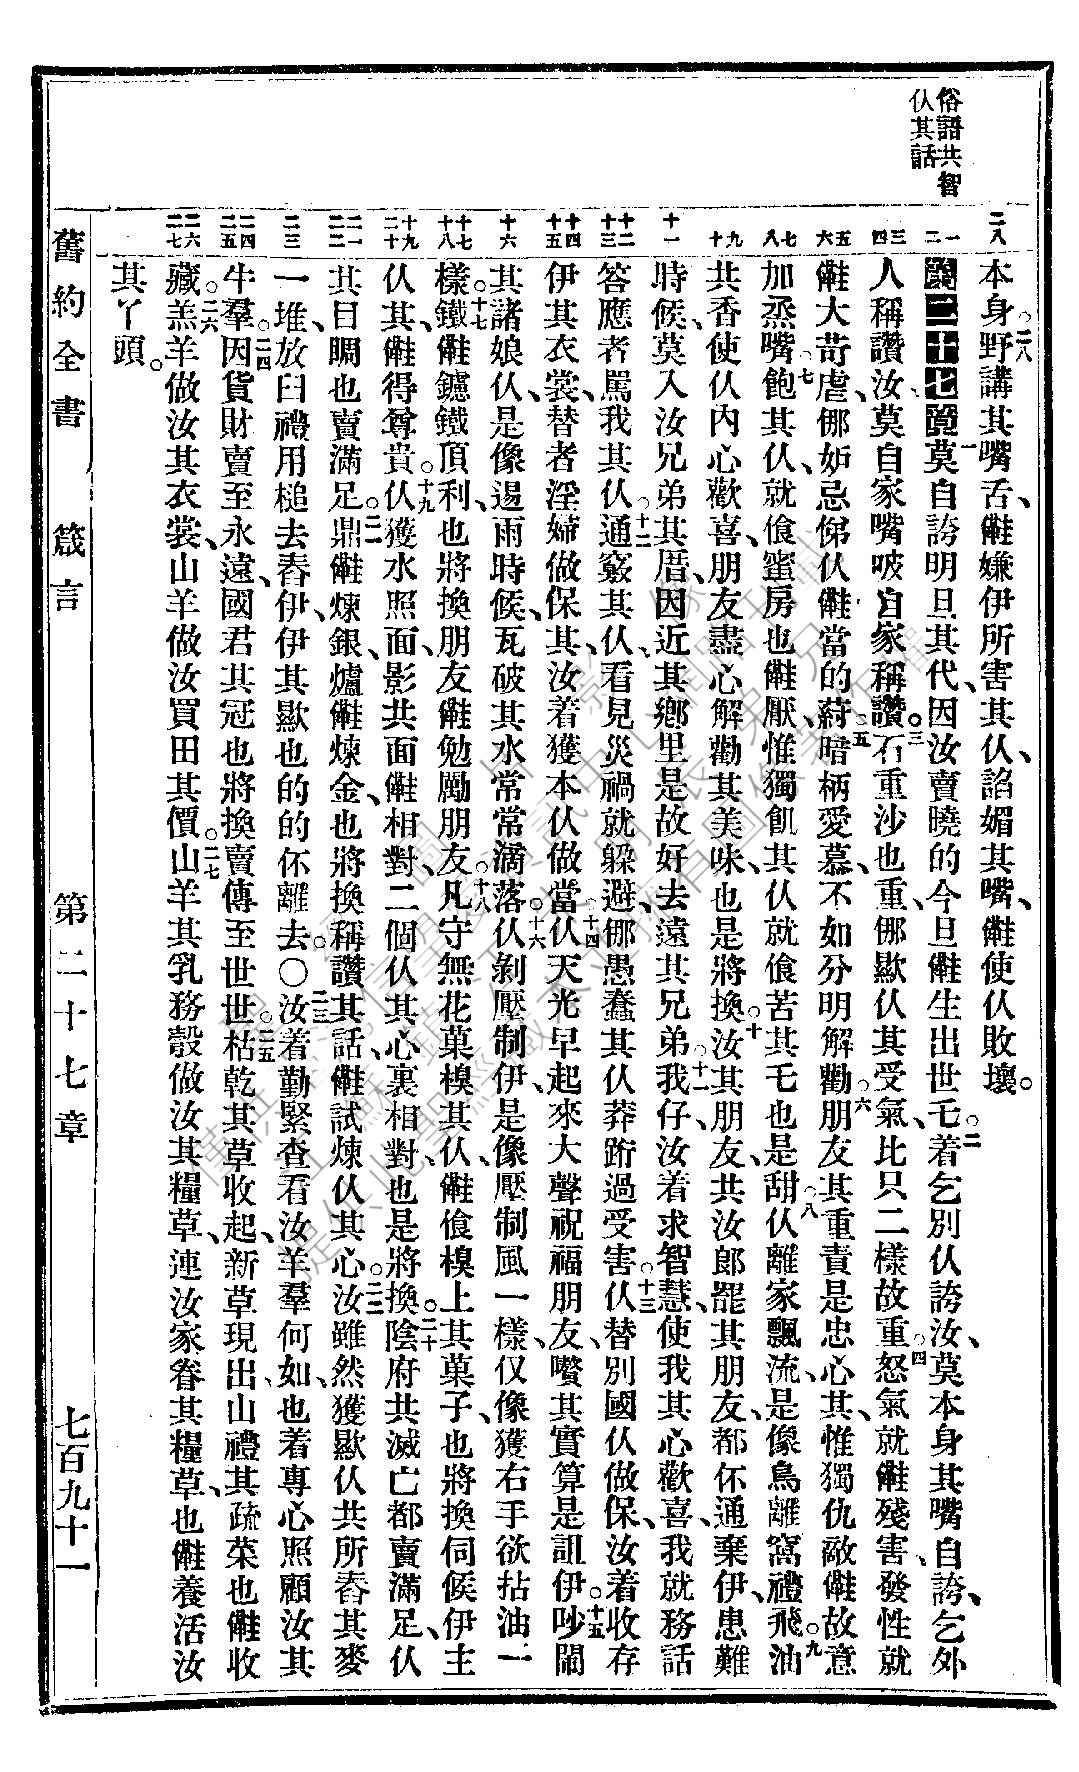 俗語共智
仈其話
二八
本身野講其嘴舌、𣍐嫌伊所害其仈、諂媚其嘴、𣍐使仈敗壞。
一 二
第二十七章 莫自誇明旦其代、因汝賣曉的今旦𣍐生出世乇。着乞別仈誇汝、莫本身其嘴自誇、乞外
三 四
人稱讚汝、莫自家嘴吱自家稱讚。石重沙也重、㑚歇仈其受氣、比只二樣故重。怒氣就𣍐殘害、發性就
五 六
𣍐大苛虐、㑚妒忌俤仈𣍐當的。𦵷暗柄愛慕、不如分明解勸。朋友其重責是忠心其、惟獨仇敵𣍐故意
七 八
加烝嘴。飽其仈、就飡蜜房也𣍐厭、惟獨飢其仈、就飡苦其乇也是甜。仈離家飄流、是像鳥離窩禮飛。油
九 十
共香使仈內心歡喜、朋友盡心解勸其美味、也是將換。汝其朋友、共汝郎罷其朋友、都伓通棄伊、患難
十一
時候、莫入汝兄弟其厝、因近其鄉里、是故好去遠其兄弟。我仔汝着求智慧、使我其心歡喜、我就務話
十二 十三
答應者罵我其仈。通竅其仈、看見災禍就躱避、㑚愚蠢其仈莽跨過受害。仈替別國仈做保、汝着收存
十四 十五
伊其衣裳、替者淫婦做保其、汝着獲本仈做當。仈天光早起來、大聲祝福朋友、嚽其實算是詛伊。吵鬧
十六
其諸娘仈、是像逿雨時候、瓦破其水常常滴落。仈剝壓制伊、是像壓制風一樣、仅像獲右手欲拈油一
十七 十八
樣。鐵𣍐鑢鐵頂利、也將換朋友𣍐勉勵朋友。凡守無花菓樉其仈、𣍐飡樉上其菓子、也將換伺候伊主
十九 二十
仈其、𣍐得尊貴。仈獲水照面、影共面𣍐相對、二個仈其心裏相對、也是將換。陰府共滅亡都賣滿足、仈
二一 二二
其目睭也賣滿足。鼎𣍐煉銀、爐𣍐煉金、也將換稱讚其話、𣍐試煉仈其心。汝雖然獲歇仈共所舂其麥
二三
一堆、放臼禮用槌去舂伊、伊其歇也的的伓離去。〇汝着勤緊查看汝羊羣何如、也着專心照顧汝其
二四 二五
牛羣。因貨財賣至永遠、國君其冠也將換賣傳至世世。枯乾其草收起、新草現出、山禮其蔬菜也𣍐收
二六 二七
藏。羔羊做汝其衣裳、山羊做汝買田其價。山羊其乳務彀做汝其糧草、連汝家眷其糧草、也𣍐養活汝
其丫頭。
舊約全書 箴言 第二十七章 七百九十一